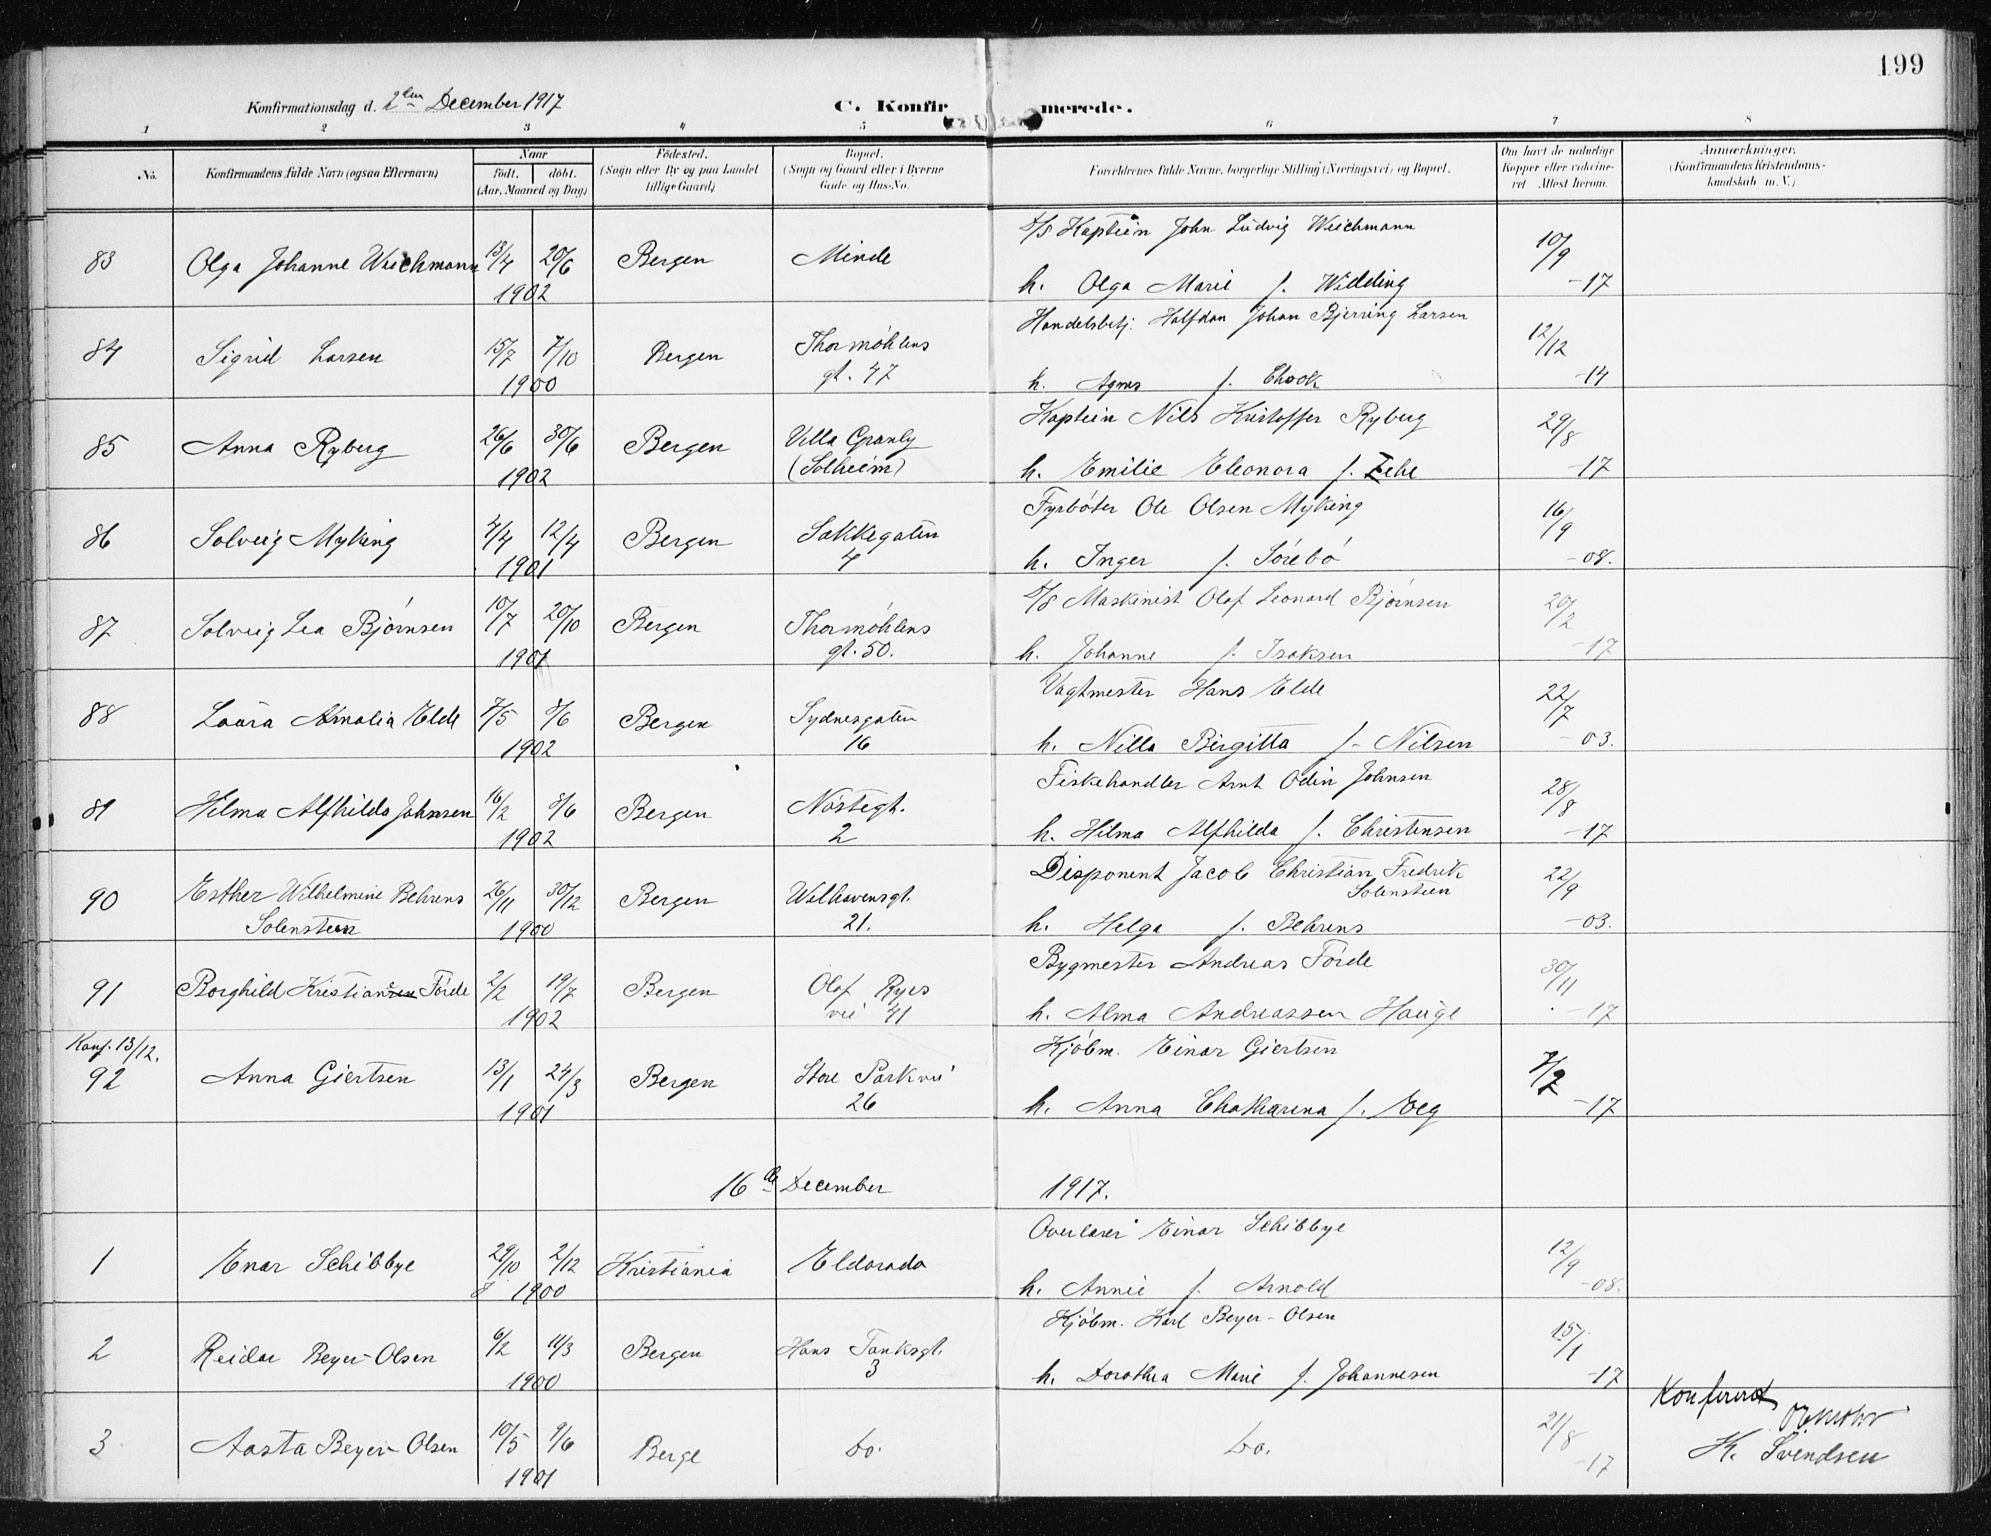 199
Konfirmationsdag d. 2den December 1917 C. Konfirmerede.
1 2 3 4 5 6 7 8
No. Konfirmandens fulde Navn (ogsaa Efternavn) Naar født. døbt. (Aar, Maaned og Dag) Fødested. (Sogn eller By og paa Landet tillige Gaard) Bopæl. (Sogn og Gaard eller i Byerne Gade og Hus-No. Forældrenes fulde Navne, borgerlige Stilling (Næringsvei) og Bopæl. Om havt de naturlige Kopper eller vakcineret. Attest herom. Anmærkninger. (Konfirmandens Kristendomskundskab m. V.)
83 Olga Johanne Wiechmann 13/4 20/6 Bergen Minde D/S Kaptein John Ludvig Wiechmann 10/9
1902 h. Olga Marie f. Widding -17
84 Sigrid Larsen 15/7 7/10 Bergen Thormøhlens Handelsbetj. Halfdan Johan Bjerring Larsen 12/12
1900 gt. 47 h. Agnes f. -14
85 Anna Ryberg 26/6 30/6 Bergen Villa Granly Kaptein Nils Kristoffer Ryberg 29/8
1902 (Solheim) h. Emilie Eleonora f. -17
86 Solveig Myking 4/4 12/4 Bergen Sakkegaten Fyrbøter Ole Olsen Myking 16/9
1901 4 h. Inger f. Sørebø -08.
87 Solveig Lea Bjørnsen 10/7 20/10 Bergen Thormøhlens D/S Maskinist Olaf Leonard Bjørnsen 20/2
1901 gt. 50. h. Johanne f. Isaksen -17
88 Laura Amalia Elde 7/5 8/6 Bergen Sydnesgaten Vagtmester Hans Elde 22/7
1902 16 h. Nilla Birgitta f. Nilsen -03.
81 Hilma Alfhilda Johnsen 16/2 8/6 Bergen Nøstegt. Fiskehandler Arnt Odin Johnsen 28/8
1902 2 h. Hilma Alfhilda f. Christensen -17
90 Esther Wilhelmine Behrens 26/11 30/12 Bergen Welhavensgt. Disponent Jacob Christian Fredrik 22/9
Solensteen 1900 21. Solensteen
h. Helga f. Behrens -03.
91 Borghild Kristiansen Førde 2/2 19/7 Bergen Olaf Ryes Bygmester Andreas Førde 30/11
1902 vei 41 h. Alma Andreassen Hauge -17
Konf. 13/12.
92 Anna Giertsen 13/1 24/3 Bergen Store Parkvei Kjøbm. Einar Giertsen 7/2
1901 26 h. Anna Chatharina f. Eeg -17
16de December 1917.
1 Enar Schibbye 29/10 2/12 Kristiania Eldorado Overlærer Einar Schibbye 12/9
1900 h. Annie f. Arnold -08.
2 Reidar Beyer-Olsen 6/2 11/3 Bergen Hans Tanksgt. Kjøbm. Karl Beyer-Olsen 15/1
1900 3 h. Dorothea Marie f. Johannesen -17
3 Aasta Beyer-Olsen 10/5 9/6 Berge Do. Do. 21/8 Konfereret
1901 -17 K. Svendsen